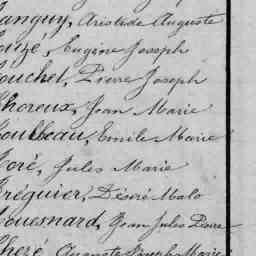 anguy, Aristide Auguste
oize, Eugène Joseph
ouchet, Pierre Joseph
Choreux, Jean Marie
oulbeau, Emile Marie
oré, Jules Marie
réguier, Désiré Malo
ouesnard, Jean Jules Pierre
heré, Auguste Joseph Marie